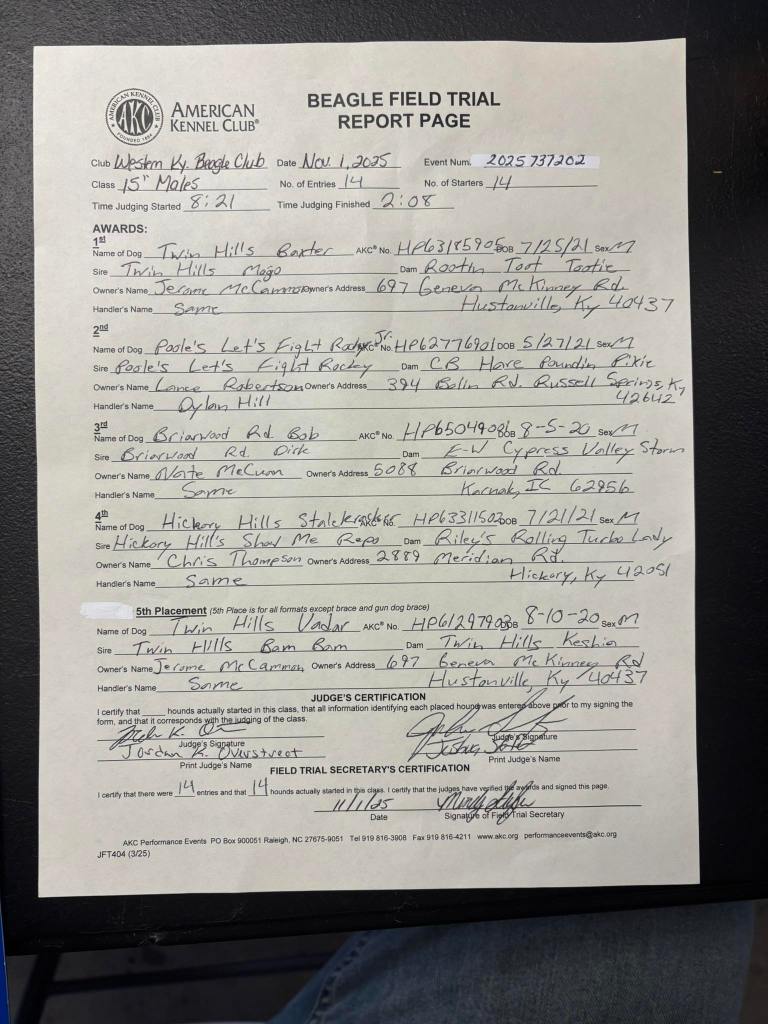 AMERICAN KENNEL CLUB
AKC
FOUNDED 1884
AMERICAN
KENNEL CLUB®
BEAGLE FIELD TRIAL
REPORT PAGE
Club Western Ky. Beagle Club Date Nov. 1, 2025 Event Num. 2025737202
Class 15" Males No. of Entries 14 No. of Starters 14
Time Judging Started 8:21 Time Judging Finished 2:08
AWARDS:
1st
Name of Dog Twin Hills Baxter AKC® No. HP63185905 DOB 7/25/21 Sex M
Sire Twin Hills Mojo Dam Rootin Toot Tootie
Owner's Name Jerome McCammon Owner's Address 697 Geneva McKinney Rd.
Handler's Name Same Hustonville, Ky 40437
2nd
Name of Dog Poole's Let's Fight Rocky Jr. AKC® No. HP62776901 DOB 5/27/21 Sex M
Sire Poole's Let's Fight Rocky Dam CB Hare Poundin Pixie
Owner's Name Lance Robertson Owner's Address 394 Bolin Rd. Russell Springs, Ky
Handler's Name Dylan Hill 42642
3rd
Name of Dog Briarwood Rd. Bob AKC® No. HP65049086 DOB 8-5-20 Sex M
Sire Briarwood Rd. Dirk Dam E-W Cypress Valley Storm
Owner's Name Nate McCuan Owner's Address 5088 Briarwood Rd.
Handler's Name Same Karnak, IL 62956
4th
Name of Dog Hickory Hills AKC® No. HP63311502 DOB 7/21/21 Sex M
Sire Hickory Hill's Show Me Repo Dam Riley's Rolling Turbo Lady
Owner's Name Chris Thompson Owner's Address 2889 Meridian Rd.
Handler's Name Same Hickory, Ky 42051
5th Placement (5th Place is for all formats except brace and gun dog brace)
Name of Dog Twin Hills Vadar AKC® No. HP61297903 DOB 8-10-20 Sex M
Sire Twin Hills Bam Bam Dam Twin Hills Keshia
Owner's Name Jerome McCammon Owner's Address 697 Geneva McKinney Rd
Handler's Name Same Hustonville, Ky 40437
JUDGE'S CERTIFICATION
I certify that _____ hounds actually started in this class, that all information identifying each placed hound was entered above prior to my signing the
form, and that it corresponds with the judging of the class.
Judge's Signature Judge's Signature
Jordan K. Overstreet
Print Judge's Name Print Judge's Name
FIELD TRIAL SECRETARY'S CERTIFICATION
I certify that there were 14 entries and that 14 hounds actually started in this class. I certify that the judges have verified the awards and signed this page.
11/1/25
Date Signature of Field Trial Secretary
AKC Performance Events PO Box 900051 Raleigh, NC 27675-9051 Tel 919 816-3908 Fax 919 816-4211 www.akc.org performanceevents@akc.org
JFT404 (3/25)